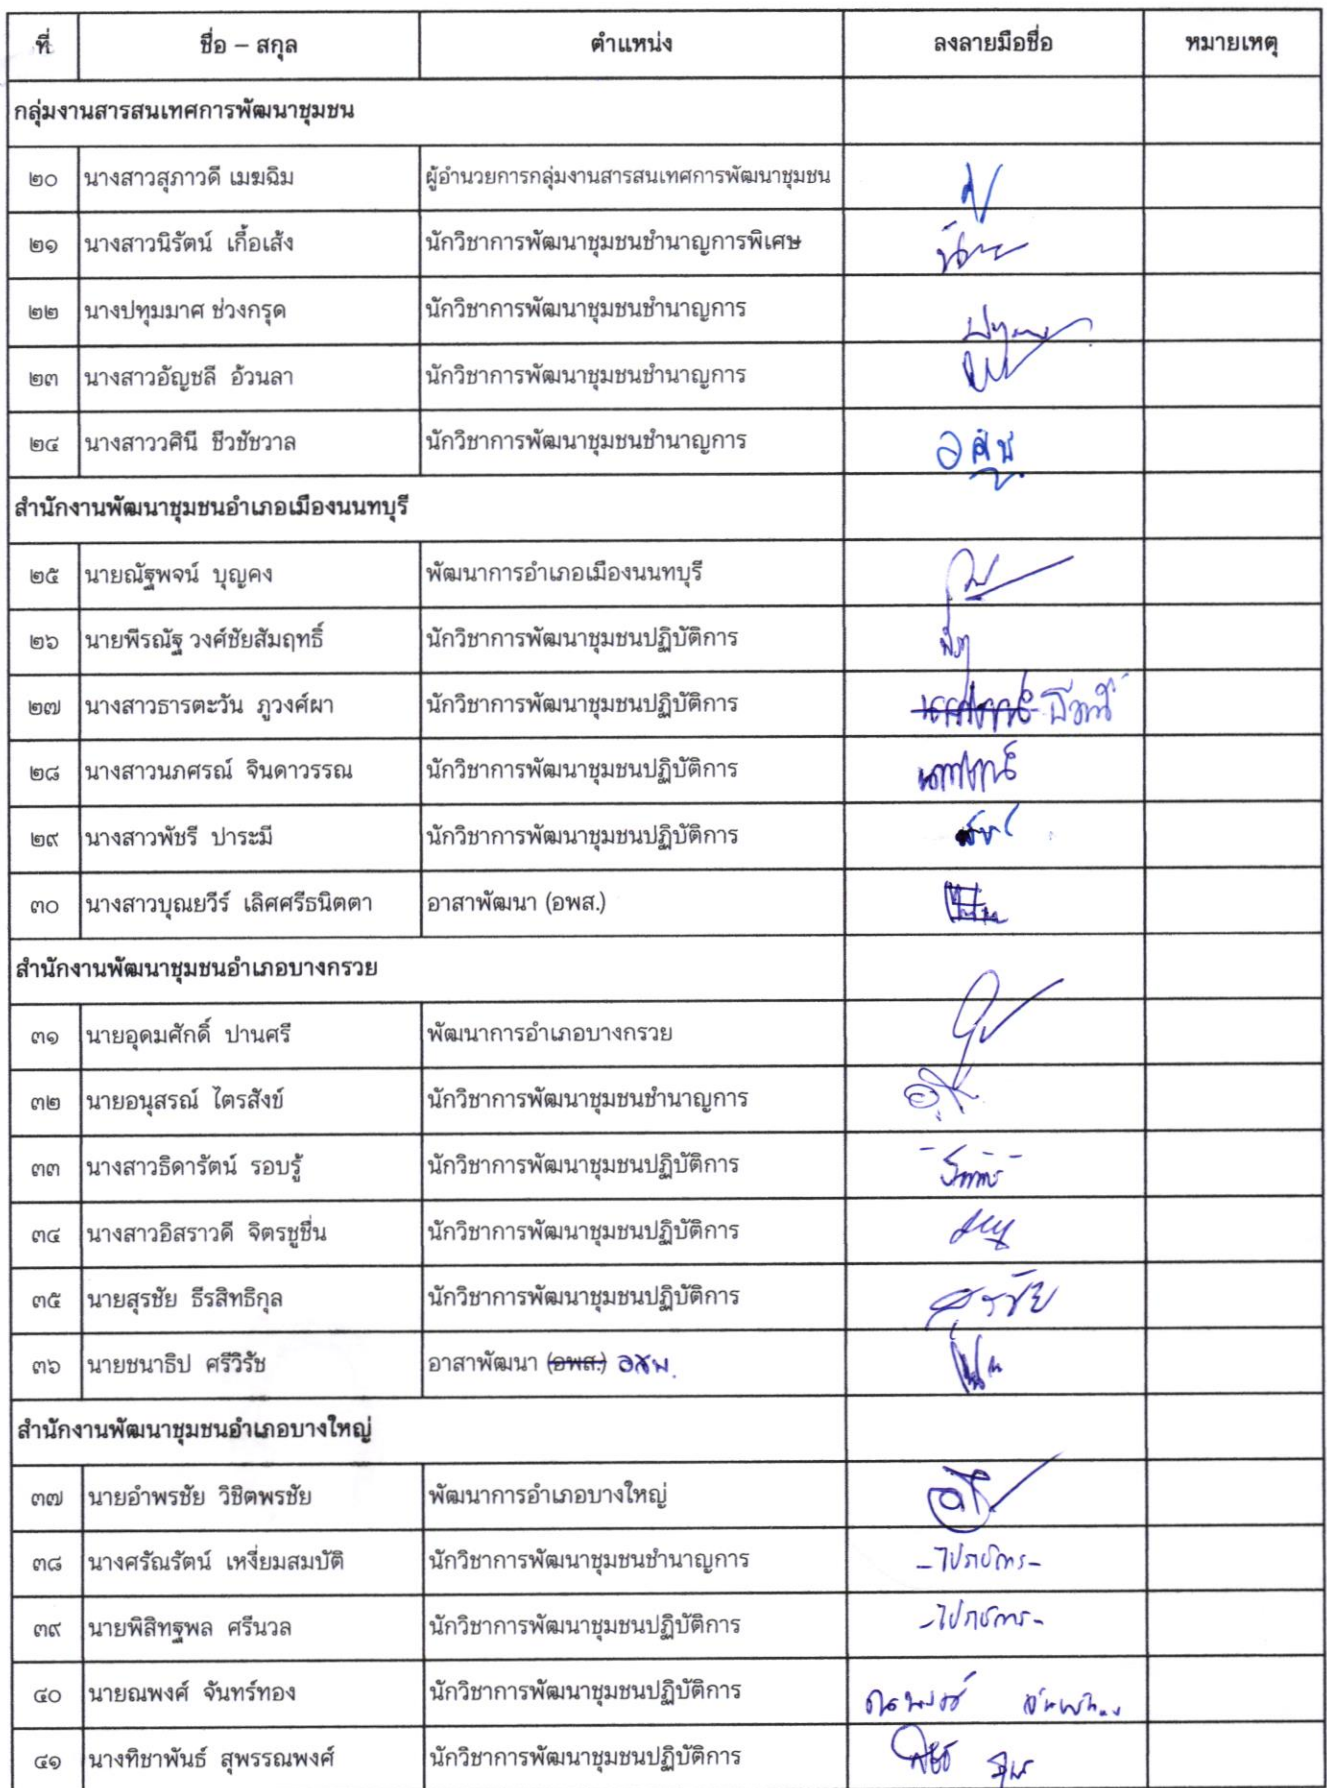 ที่ ชื่อ – สกุล ตำแหน่ง ลงลายมือชื่อ หมายเหตุ
กลุ่มงานสารสนเทศการพัฒนาชุมชน
๒๐ นางสาวสุภาวดี เมฆฉิม ผู้อำนวยการกลุ่มงานสารสนเทศการพัฒนาชุมชน
๒๑ นางสาวนิรัตน์ เกื้อเส้ง นักวิชาการพัฒนาชุมชนชำนาญการพิเศษ
๒๒ นางปทุมมาศ ช่วงกรุด นักวิชาการพัฒนาชุมชนชำนาญการ
๒๓ นางสาวอัญชลี อ้วนลา นักวิชาการพัฒนาชุมชนชำนาญการ
๒๔ นางสาววศินี ชีวชัชวาล นักวิชาการพัฒนาชุมชนชำนาญการ
สำนักงานพัฒนาชุมชนอำเภอเมืองนนทบุรี
๒๕ นายณัฐพจน์ บุญคง พัฒนาการอำเภอเมืองนนทบุรี
๒๖ นายพีรณัฐ วงศ์ชัยสัมฤทธิ์ นักวิชาการพัฒนาชุมชนปฏิบัติการ
๒๗ นางสาวธารตะวัน ภูวงศ์ผา นักวิชาการพัฒนาชุมชนปฏิบัติการ
๒๘ นางสาวนภศรณ์ จินดาวรรณ นักวิชาการพัฒนาชุมชนปฏิบัติการ
๒๙ นางสาวพัชรี ปาระมี นักวิชาการพัฒนาชุมชนปฏิบัติการ
๓๐ นางสาวบุณยวีร์ เลิศศรีธนิตตา อาสาพัฒนา (อพส.)
สำนักงานพัฒนาชุมชนอำเภอบางกรวย
๓๑ นายอุดมศักดิ์ ปานศรี พัฒนาการอำเภอบางกรวย
๓๒ นายอนุสรณ์ ไตรสังข์ นักวิชาการพัฒนาชุมชนชำนาญการ
๓๓ นางสาวธิดารัตน์ รอบรู้ นักวิชาการพัฒนาชุมชนปฏิบัติการ
๓๔ นางสาวอิสราวดี จิตรชูชื่น นักวิชาการพัฒนาชุมชนปฏิบัติการ
๓๕ นายสุรชัย ธีรสิทธิกุล นักวิชาการพัฒนาชุมชนปฏิบัติการ สุรชัย
๓๖ นายชนาธิป ศรีวิรัช อาสาพัฒนา (อพส.)
สำนักงานพัฒนาชุมชนอำเภอบางใหญ่
๓๗ นายอำพรชัย วิชิตพรชัย พัฒนาการอำเภอบางใหญ่
๓๘ นางศรัณรัตน์ เหงี่ยมสมบัติ นักวิชาการพัฒนาชุมชนชำนาญการ -ไปราชการ-
๓๙ นายพิสิทฐพล ศรีนวล นักวิชาการพัฒนาชุมชนปฏิบัติการ -ไปราชการ-
๔๐ นายณพงศ์ จันทร์ทอง นักวิชาการพัฒนาชุมชนปฏิบัติการ
๔๑ นางทิชาพันธ์ สุพรรณพงศ์ นักวิชาการพัฒนาชุมชนปฏิบัติการ